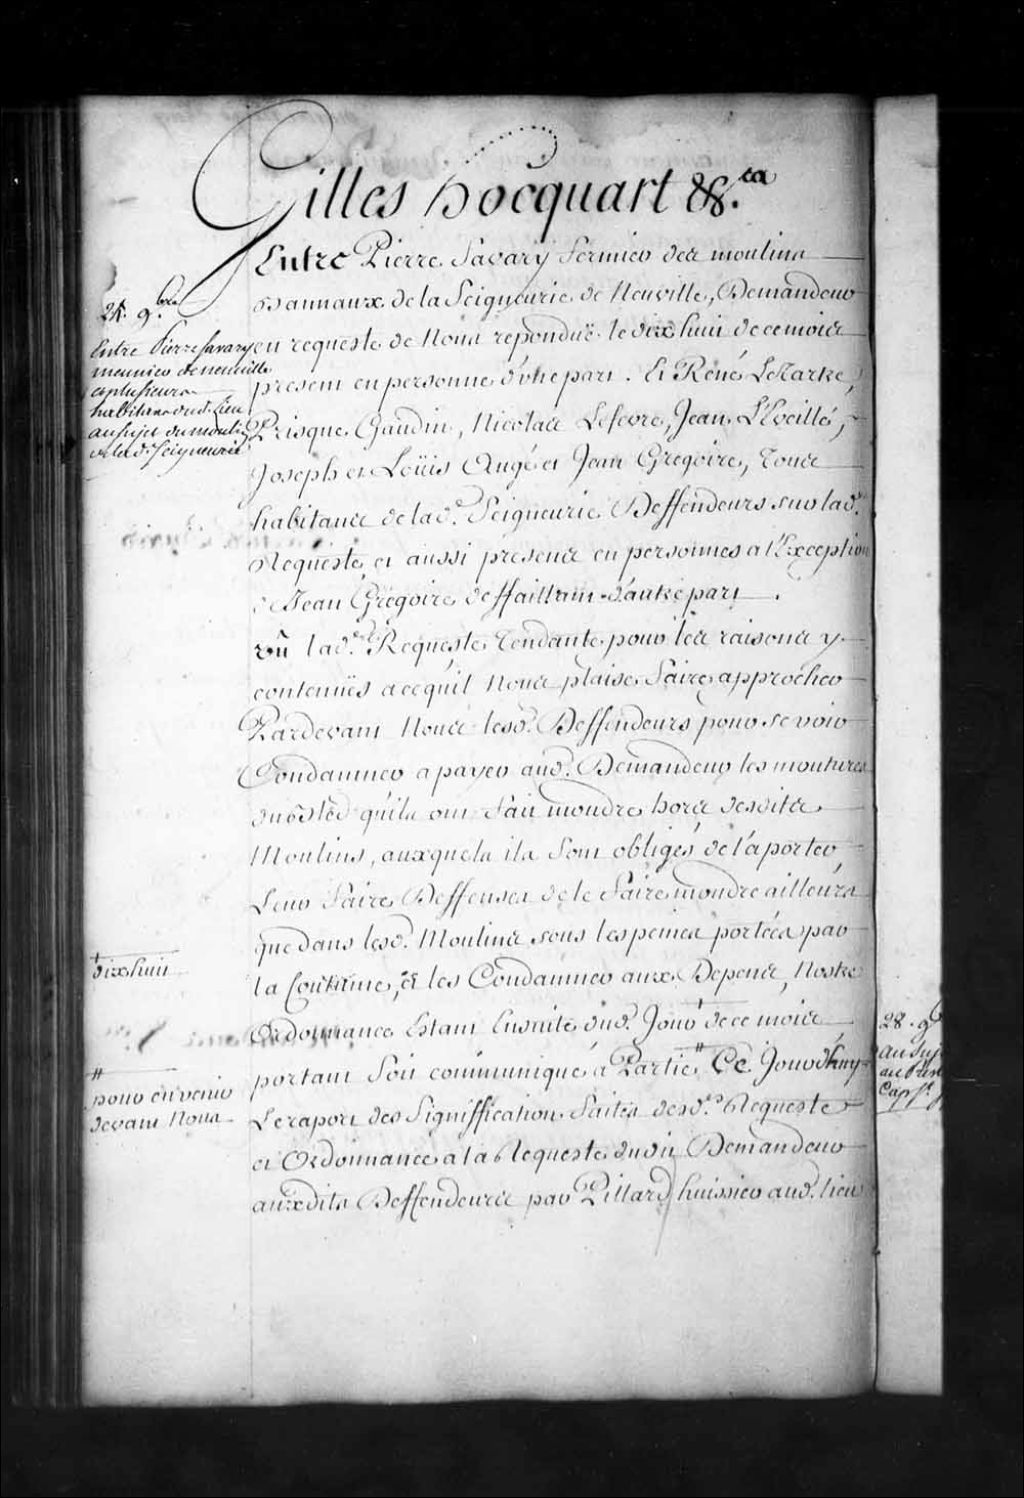 Gilles hocquart &c.ra
Entre Pierre Savary fermier des moulins
Bannaux de la Seigneurie de Neuville, Demandeur
en requeste de Nous repondüe le dix huit de ce mois
present en personne d'une part. Et Réné LeTarte,
Prisque Gaudin, Nicolas Lefevre, Jean L'Eveillé,
Joseph et Loüis Augé et Jean Gregoire, Tous
habitans de lad.e Seigneurie Deffendeurs sur lad.e
Requeste et aussi présens en personnes a l'Exception
de Jean Gregoire deffaillant d'autre part.
Vû lad.e Requeste Tendante pour les raisons y
contenües a ce qu'il Nous plaise faire approcher
Pardevant Nous lesd. Deffendeurs pour se voir
Condamner a payer aud. Demandeur les moutures
du bled qu'ils ont fait moudre hors desdits
Moulins, auxquels ils sont obligés de l'aporter,
Leur faire Deffenses de le faire moudre ailleurs
que dans lesd. Moulins sous les peines portées par
la Coutume, & les Condamner aux Depens, Nostre
Ordonnance Estant Ensuite dud. Jour † de ce mois
portant Soit communiqué a Partie " Ce Jourd'huy
Le raport des Signiffication faites desd.es Requeste
et Ordonnance a la Requeste dudit Demandeur
auxdits Deffendeurs par Pillard huissier aud. lieu
24. 9.bre
Entre Pierre Savary
meunier de neuville
et plusieurs
habitans dud. Lieu
au sujet du moulin
de lad.e Seigneurie
† dix huit
" pour en venir
devant Nous
28. 9b
au suj